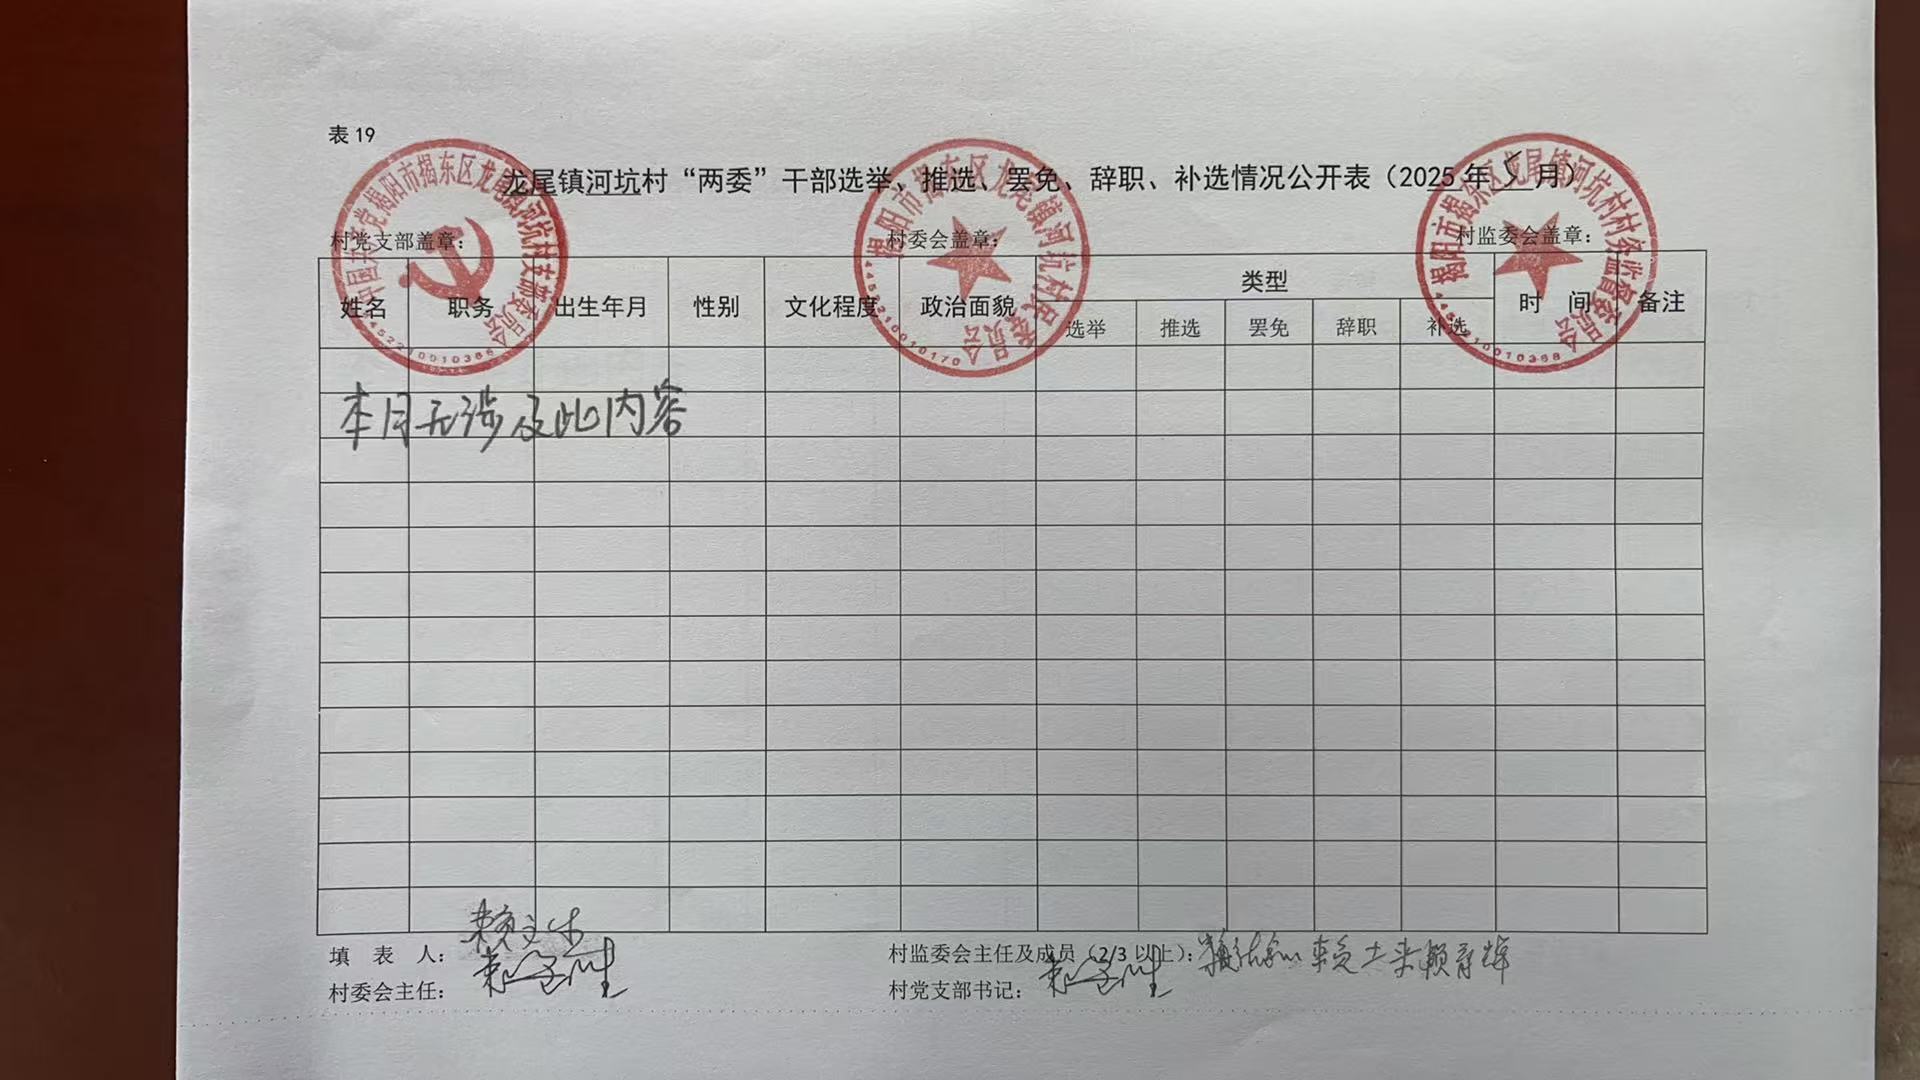 表 19
龙尾镇河坑村“两委”干部选举、推选、罢免、辞职、补选情况公开表（2025 年 5 月）
村党支部盖章： 村委会盖章： 村监委会盖章：
中国共产党揭阳市揭东区龙尾镇河坑村支部委员会
揭阳市揭东区龙尾镇河坑村民委员会
4452210010170
揭阳市揭东区龙尾镇河坑村村务监督委员会
4452210010368
姓名 职务 出生年月 性别 文化程度 政治面貌 类型 时 间 备注
选举 推选 罢免 辞职 补选
本月无涉及此内容
填 表 人： 村监委会主任及成员（2/3 以上）：
村委会主任： 村党支部书记：